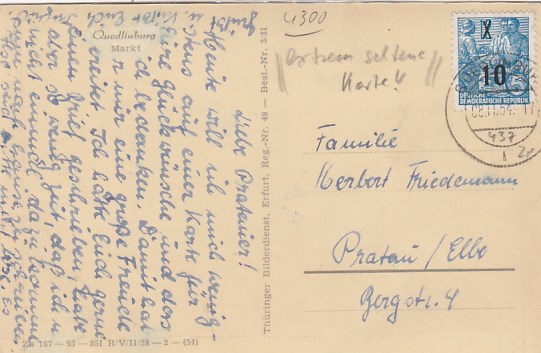 Quedlinburg
Markt
Liebe Pratauer!
Heute will ich mich wenig-
stens auf einer Karte für
Eure Glückwünsche und das
bedanken. Damit habt
Ihr mir eine große Freude
bereitet. Ich hätte Euch gerne
einen Brief geschrieben, habe
aber so wenig Zeit, daß ich
nicht einmal dazu komme
grüßt
u. küßt Euch
4300
extrem seltene
Karte!
X
10
DEUTSCHE
DEMOKRATISCHE REPUBLIK
437
Familie
Herbert Friedemann
Pratau/Elbe
Bergstr. 4
Thüringer Bilderdienst, Erfurt, Reg.-Nr. 49 — Best.-Nr. 331
ZB 187 — 93 — 851 R/V/11/28 — 2 — (54)